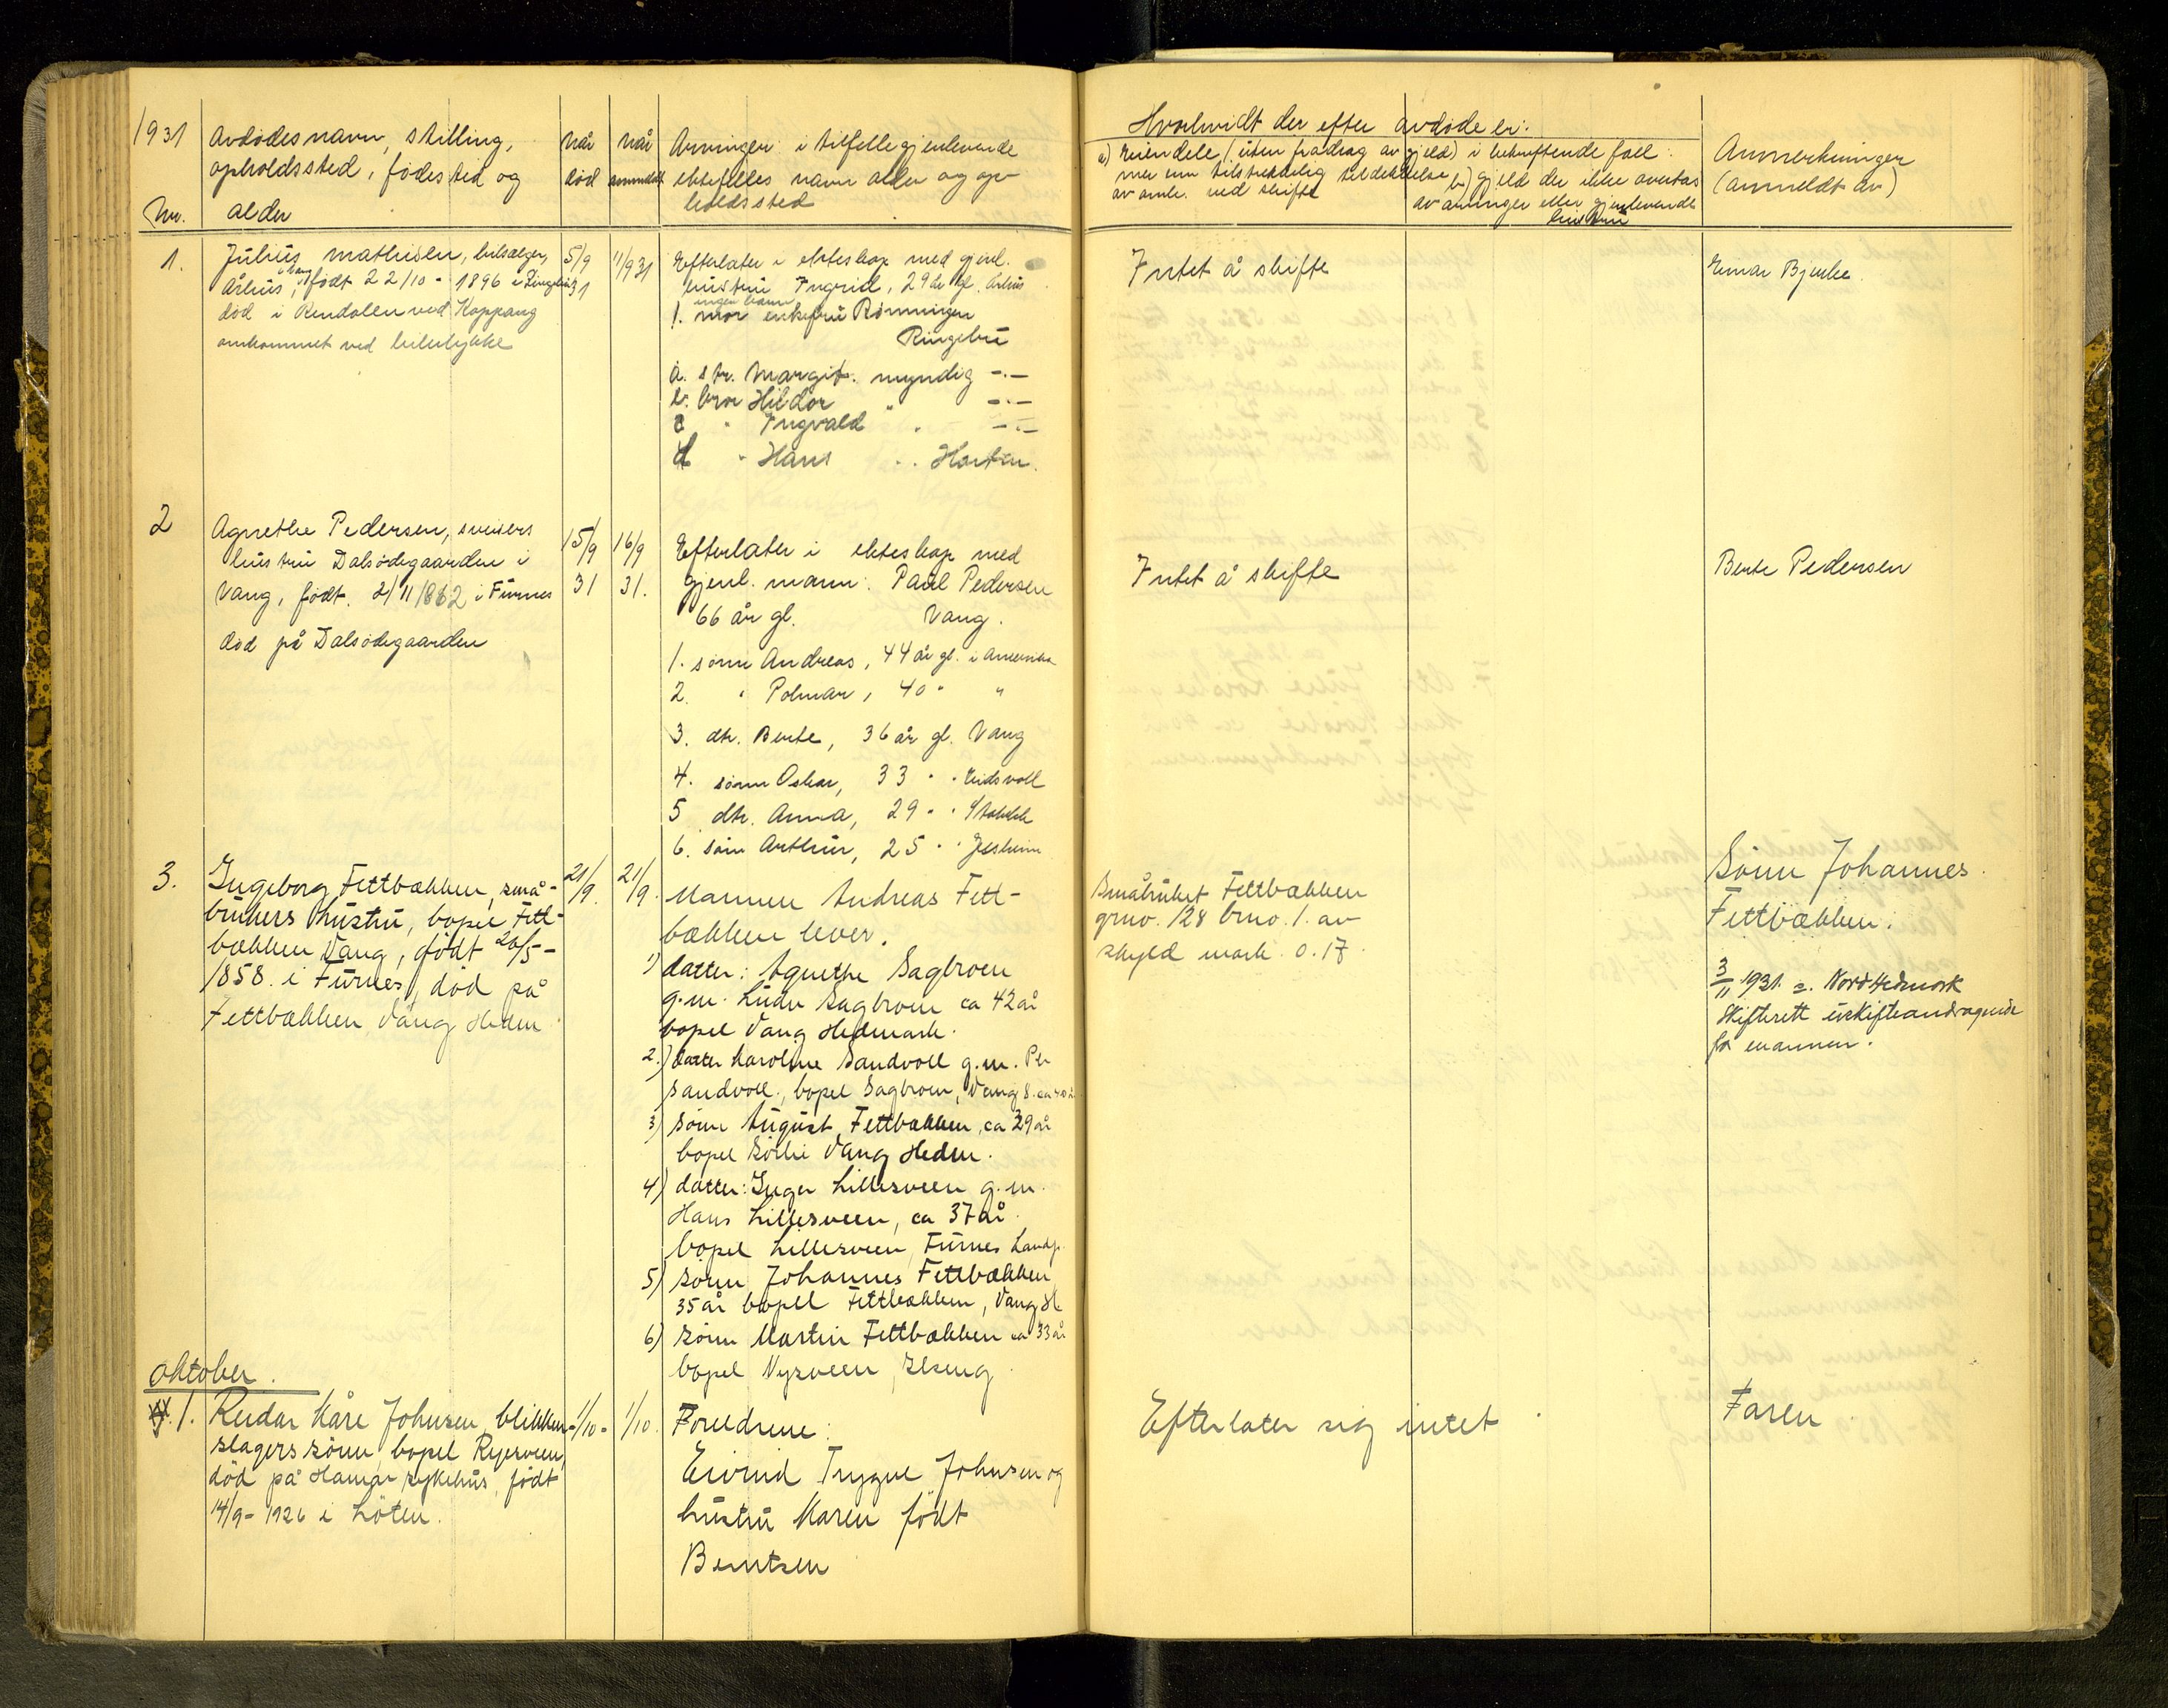 1931
Nr.
Avdødes navn, stilling,
opholdssted, fødested og
alder
Når
død
Når
anmeldt
Arvinger i tilfelle gjenlevende
ektefelles navn alder og op-
holdssted
Hvorhvidt der efter avdøde er:
a) Eiendele (uten fradrag av gjeld) i bekreftende fall:
mer enn tilstrekkelig til dekkelse
av omk. ved skifte
b) gjeld der ikke overtas
av arvinger eller gjenlevende
hustru
Anmerkninger
(anmeldt av)
1.
Julius Mathisen, bilselger,
Århus, født 22/10 - 1896 i Ringebu
død i Rendalen ved Koppang
omkommet ved bilulykke
5/9
31
11/9 31
Efterlater i ekteskap med gjenl.
hustru Ingrid, 29 år gl. Århus
ingen barn
1. mor enkefru Rønningen
Ringebu
a. str. Margit. myndig -.-
b. bror Hildor " -.-
c " Ingvald " -.-
d " Hans " Horten.
Intet å skifte
Einar Bjerke
2
Agnethe Pedersen, sveisers
hustru Dalsødegaarden i
Vang, født 2/11 1862 i Furnes
død på Dalsødegaarden
15/9
31
16/9
31.
Efterlater i ekteskap med
gjenl. mann: Paul Pedersen
66 år gl. Vang.
1. sønn Andreas, 44 år gl. i Amerika
2. " Polmar, 40 " "
3. dtr. Berte, 36 år gl. Vang
4. sønn Oskar, 33 " " Eidsvoll
5 dtr. Anna, 29 " "
6. sønn Arthur, 25 " " Jessheim
Intet å skifte
Berte Pedersen
3.
Ingeborg Fettbækken, små-
brukers hustru, bopel Fett-
bækken Vang, født 20/5 -
1858. i Furnes, død på
Fettbækken, Vang Hedm.
21/9.
21/9.
Mannen Andreas Fett-
bækken lever.
1) datter: Agnethe Sagbroen
g.m. Ludv Sagbroen ca 42 år
bopel Vang Hedmark.
2.) datter Karoline Sandvoll g.m. Per
Sandvoll., bopel Sagbroen, Vang H. ca 40 år
3) sønn August Fettbækken, ca 39 år
bopel Sørlie Vang Hedm.
4) datter: Inger Lillesveen g.m.
Hans Lillesveen, ca 37 år
bopel Lillesveen, Furnes Landp.
5) sønn Johannes Fettbækken
35 år bopel Fettbækken, Vang H
6) sønn Martin Fettbækken ca 33 år
bopel Nysveen, Elseng.
Småbruket Fettbækken
grno. 128 brno. 1. av
skyld mark. 0.17.
Sønn Johannes
Fettbækken.
3/11 1931. s. Nord Hedmark
Skifterett uskifteandragende
fra mannen.
Oktober.
1.
Reidar Kåre Johnsen, blikken-
slagers sønn, bopel Reiersveen,
død på Hamar sykehus, født
14/9 - 1926 i Løten.
1/10 -
1/10.
Foreldrene:
Eivind Trygve Johnsen og
hustru Karen født
Berntsen
Efterlater sig intet
Faren